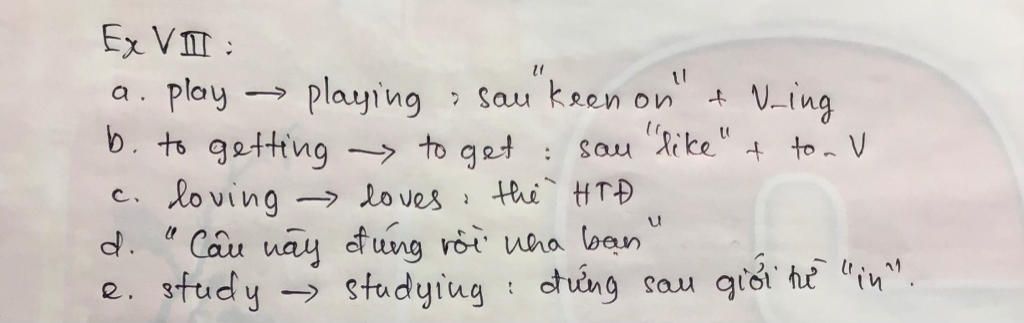 Ex VIII :
a. play → playing ; sau "keen on" + V-ing
b. to getting → to get : sau "like" + to-V
c. loving → loves : thì HTĐ
d. "Câu này đúng rồi nha bạn"
e. study → studying : đứng sau giới từ "in".